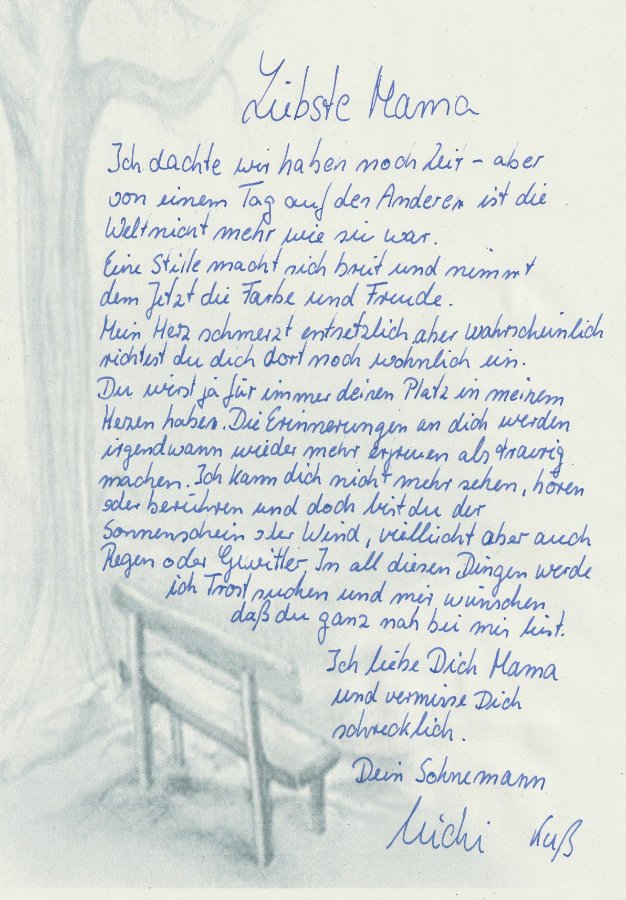 Liebste Mama
Ich dachte wir haben noch Zeit – aber
von einem Tag auf den Anderen ist die
Welt nicht mehr wie sie war.
Eine Stille macht sich breit und nimmt
dem Jetzt die Farbe und Freude.
Mein Herz schmerzt entsetzlich, aber wahrscheinlich
richtest du dich dort noch wohnlich ein.
Du wirst ja für immer deinen Platz in meinem
Herzen haben. Die Erinnerungen an dich werden
irgendwann wieder mehr erfreuen als traurig
machen. Ich kann dich nicht mehr sehen, hören
oder berühren und doch bist du der
Sonnenschein oder Wind, vielleicht aber auch
Regen oder Gewitter. In all diesen Dingen werde
ich Trost suchen und mir wünschen
daß du ganz nah bei mir bist.
Ich liebe Dich Mama
und vermisse Dich
schrecklich.
Dein Sohnemann
Michi Kuß